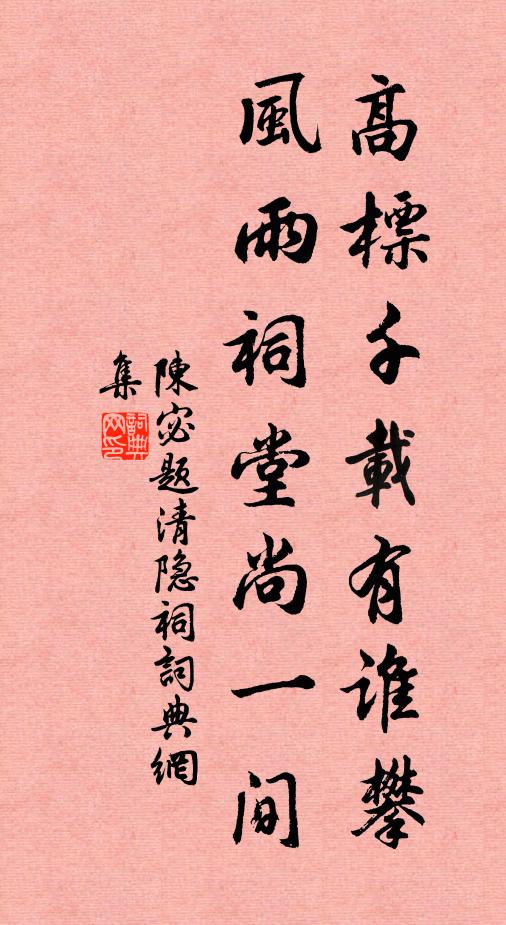 高標千載有誰攀
風雨祠堂尚一間
陳宓题清隐祠詞典網
集
詞典
网印